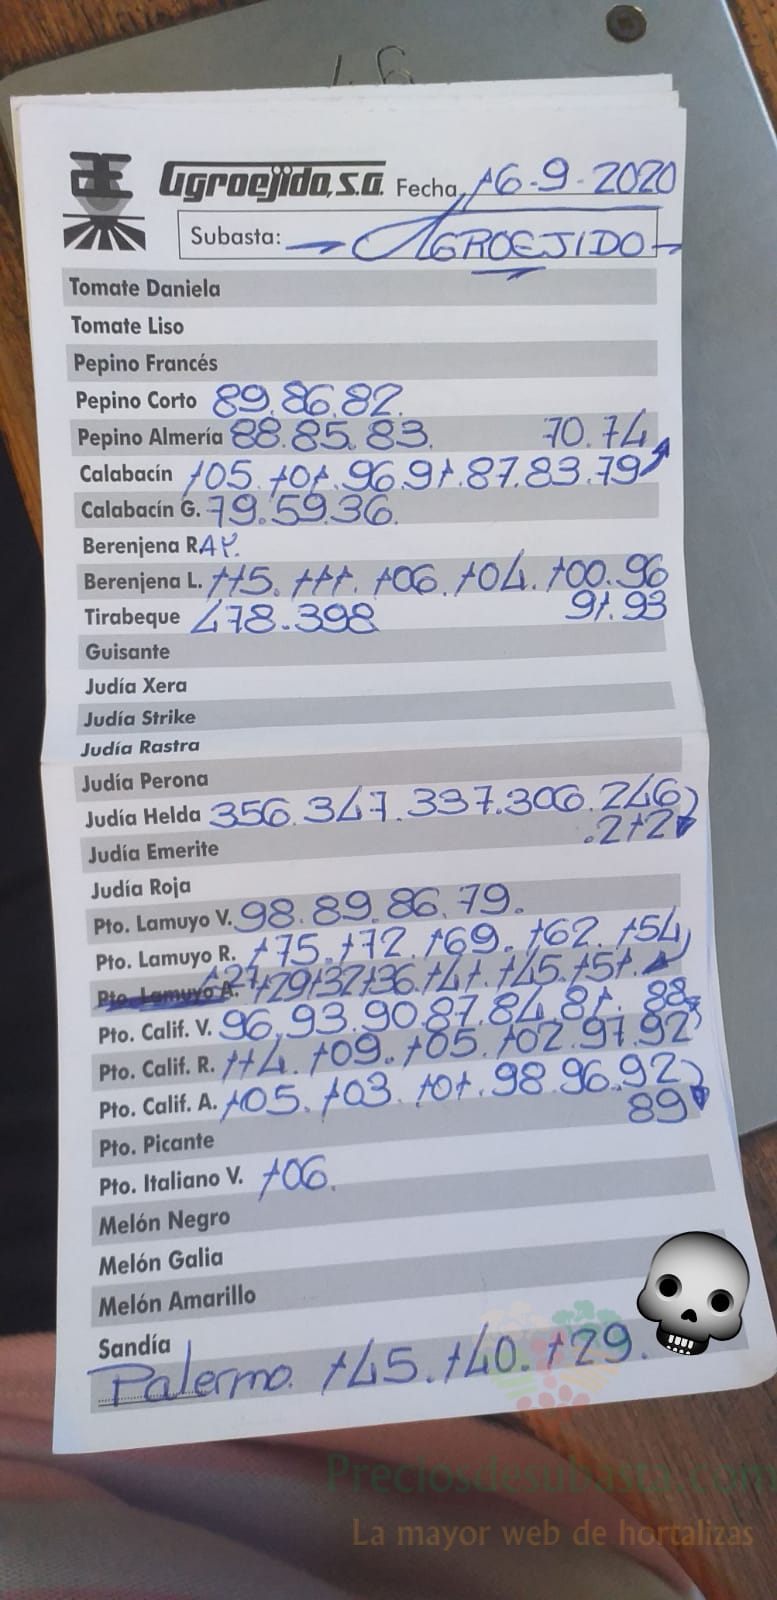 Agroejido, S.A. Fecha 16-9-2020
Subasta: AGROEJIDO
Tomate Daniela
Tomate Liso
Pepino Francés
Pepino Corto 89.86.82.
Pepino Almería 88.85.83. 70.74
Calabacín 105.101.96.91.87.83.79
Calabacín G. 79.59.36.
Berenjena R.
Berenjena L. 115.111.106.104.100.96
91.93
Tirabeque 478.398
Guisante
Judía Xera
Judía Strike
Judía Rastra
Judía Perona
Judía Helda 356.347.337.306.246
.212
Judía Emerite
Judía Roja
Pto. Lamuyo V. 98.89.86.79.
Pto. Lamuyo R. 175.172.169.162.154
Pto. Lamuyo A. 127 129 132 136.141.145.151.
Pto. Calif. V. 96.93.90.87.84.81. 88
Pto. Calif. R. 114.109.105.102.97.92
Pto. Calif. A. 105.103.101.98.96.92
89
Pto. Picante
Pto. Italiano V. 106.
Melón Negro
Melón Galia
Melón Amarillo
Sandía
Palermo. 145.140.129.
Preciosdesubasta.com
La mayor web de hortalizas